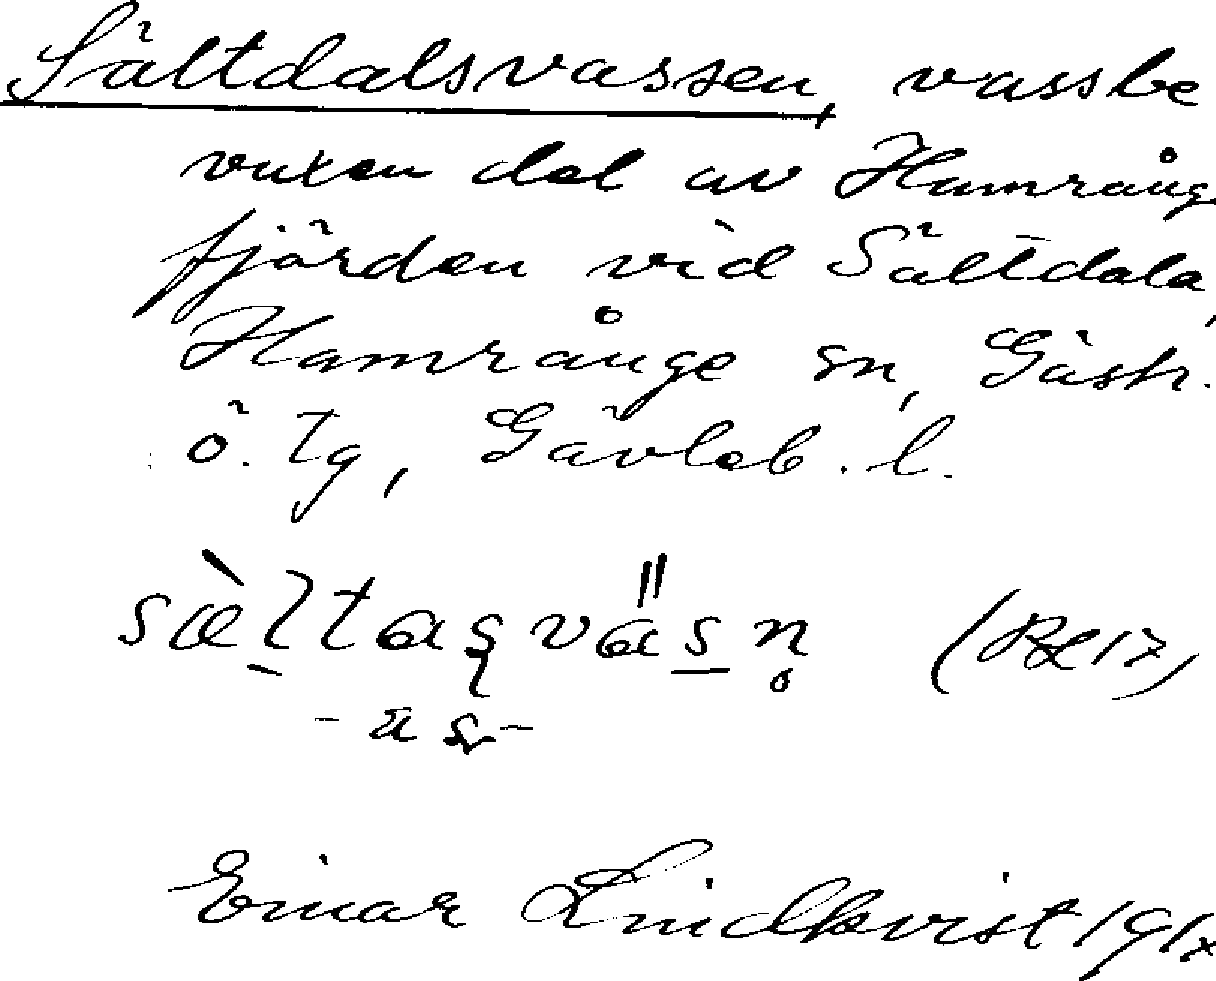 Sältdalsvassen, vassbe
vuxen del av Hamrång
fjärden vid Sältdala,
Hamrånge sn, Gästr.
ö. tg, Gävleb. l.
sæ̀ltasvasn̥
- a s -
Einar Lindkvist 191